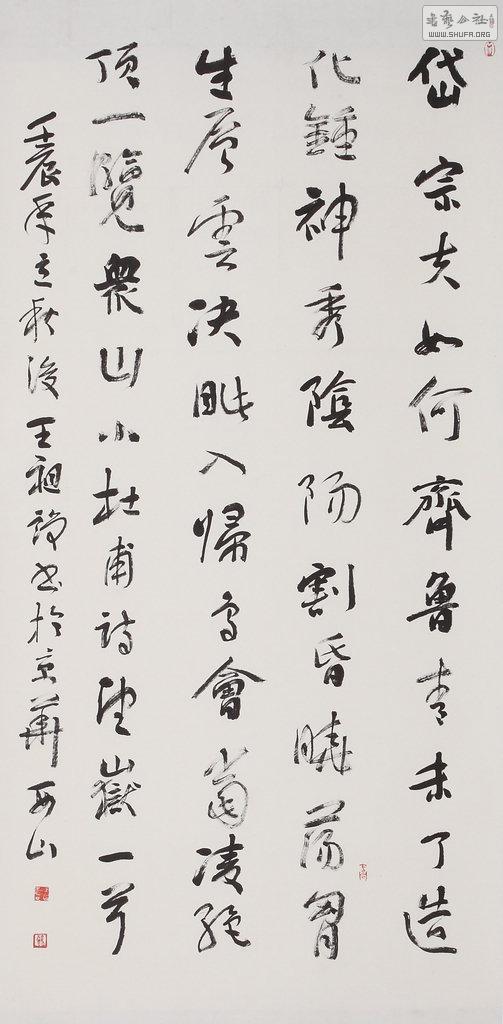 書藝公社
WWW.SHUFA.ORG
岱宗夫如何齊魯青未了造
化鍾神秀陰陽割昏曉蕩胷
生層雲决眦入歸鳥會當凌絕
頂一覽衆山小杜甫詩望嶽一首
壬辰年立秋後王祖書於京華西山